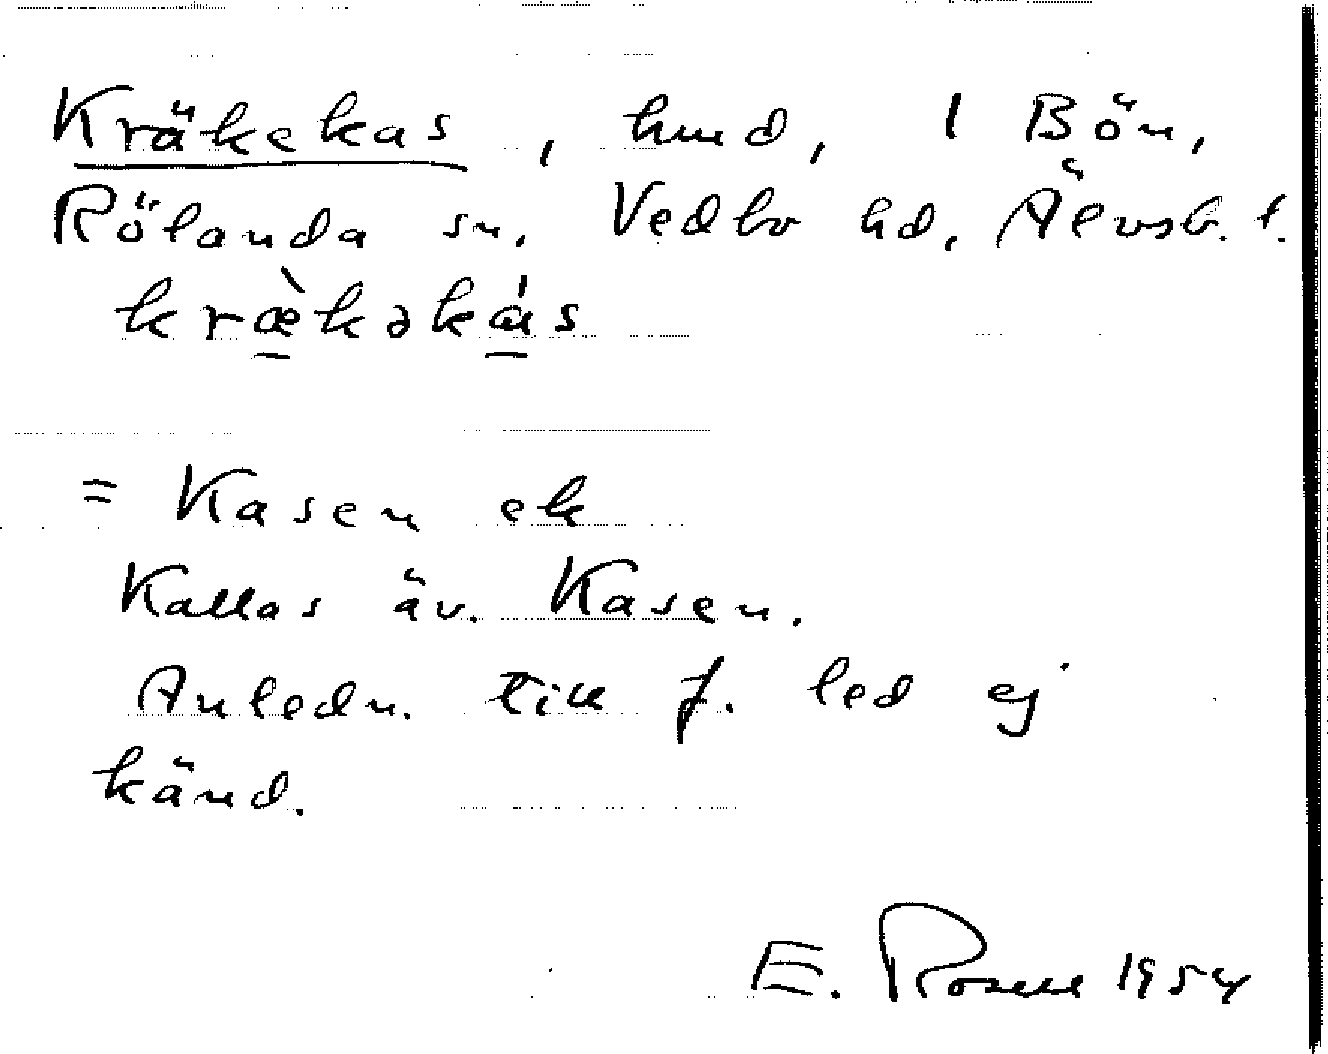 Kräkekas, hmd, 1 Bön,
Rölanda sn, Vedbo hd, Älvsb. l.
kræ̀kəkás
= Kasen ek
Kallas äv. Kasen.
Anledn. till f. led ej
känd.
E. Rosell 1954